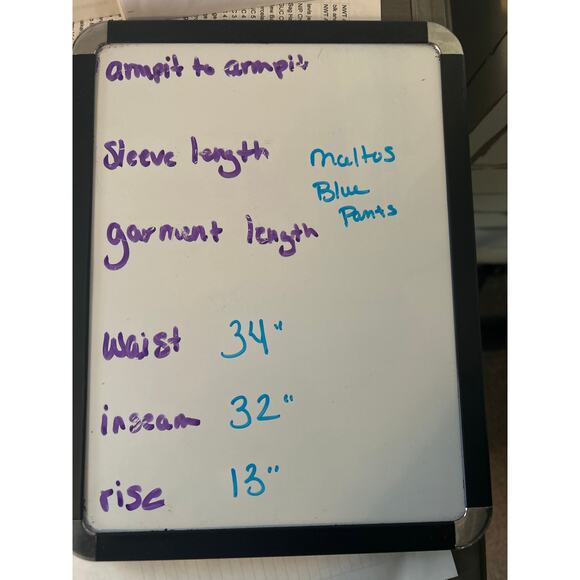 armpit to armpit
Sleeve length
maltos
Blue
Pants
garment length
Waist 34"
inseam 32"
rise 13"